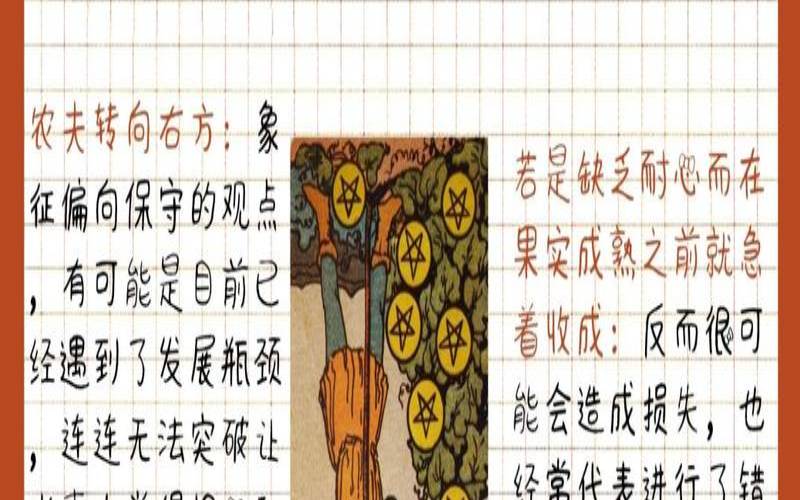 农夫转向右方：象
征偏向保守的观点
，有可能是目前已
经遇到了发展瓶颈
，连连无法突破让
若是缺乏耐心而在
果实成熟之前就急
着收成：反而很可
能会造成损失，也
经常代表进行了错